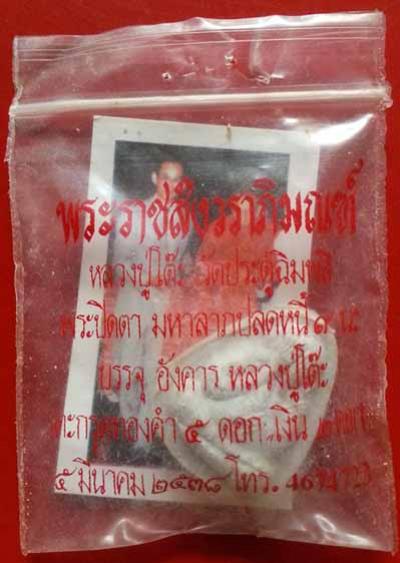 พระราชสังวราภิมณฑ์
หลวงปู่โต๊ะ วัดประดู่ฉิมพลี
พระปิดตา มหาลาภปลดหนี้
บรรจุ อังคาร หลวงปู่โต๊ะ
ตะกรุดทองคำ ๕ ดอก เงิน
๕ มีนาคม ๒๕๓๘ โทร.